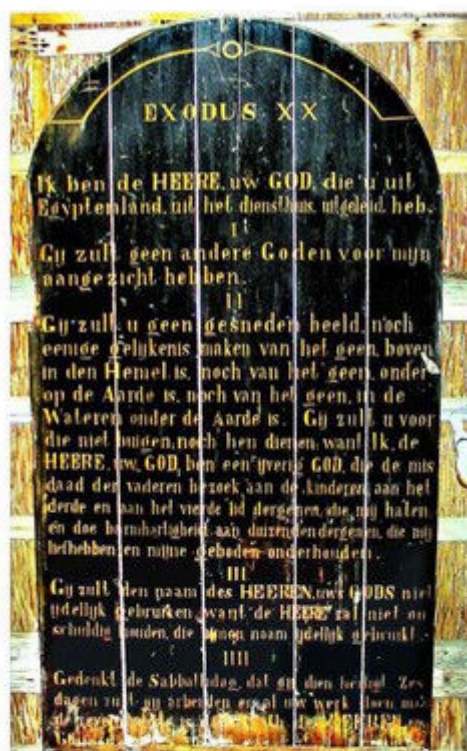 EXODUS XX
Ik ben de HEERE, uw GOD, die u uit
Egyptenland, uit het diensthuis, uitgeleid heb.
I
Gij zult geen andere Goden voor mijn
aangezicht hebben.
II
Gij zult u geen gesneden beeld, noch
eenige gelijkenis maken van het geen boven
in den Hemel is, noch van het geen onder
op de Aarde is, noch van het geen in de
Wateren onder de Aarde is. Gij zult u voor
die niet buigen, noch hen dienen, want Ik, de
HEERE, uw GOD, ben een ijverig GOD, die de mis
daad der vaderen bezoek aan de kinderen, aan het
derde en aan het vierde lid dergenen, die mij haten
en doe barmhartigheid aan duizenden dergenen, die mij
liefhebben, en mijne geboden onderhouden.
III
Gij zult den naam des HEEREN, uws GODS niet
ijdellijk gebruiken, want de HEERE zal niet on
schuldig houden, die zijnen naam ijdellijk gebruikt.
IIII
Gedenkt de Sabbathdag, dat gij dien heiligt. Zes
dagen zult gij arbeiden en al uw werk doen